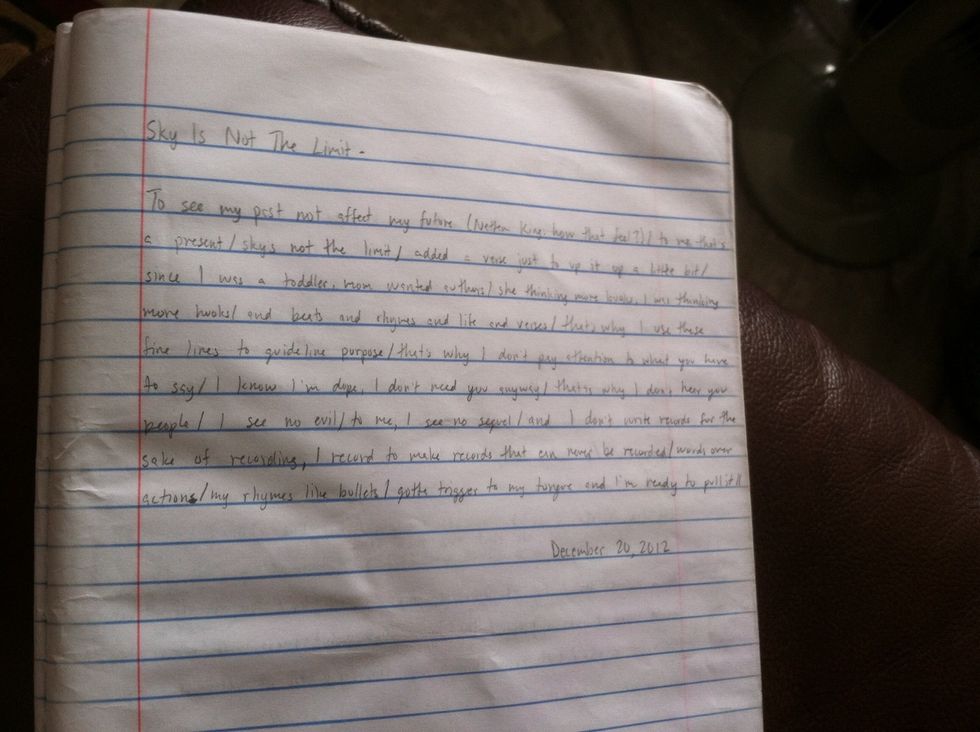 Sky Is Not The Limit.
To see my past not affect my future (Nathan King: how that feel?)/ to me that's
a present/ sky's not the limit/ added a verse just to up it up a little bit/
since I was a toddler, mom wanted authors/ she thinking more books, I was thinking
more hooks/ and beats and rhymes and life and verses/ that's why I use these
fine lines to guideline purpose/ that's why I don't pay attention to what you have
to say/ I know I'm dope, I don't need you anyway/ that's why I don't hear you
people/ I see no evil/ to me, I see no sequel/ and I don't write records for the
sake of recording, I record to make records that can never be recorded/ words over
actions/ my rhymes like bullets/ gotta trigger to my tongue and I'm ready to pull it//
December 20, 2012